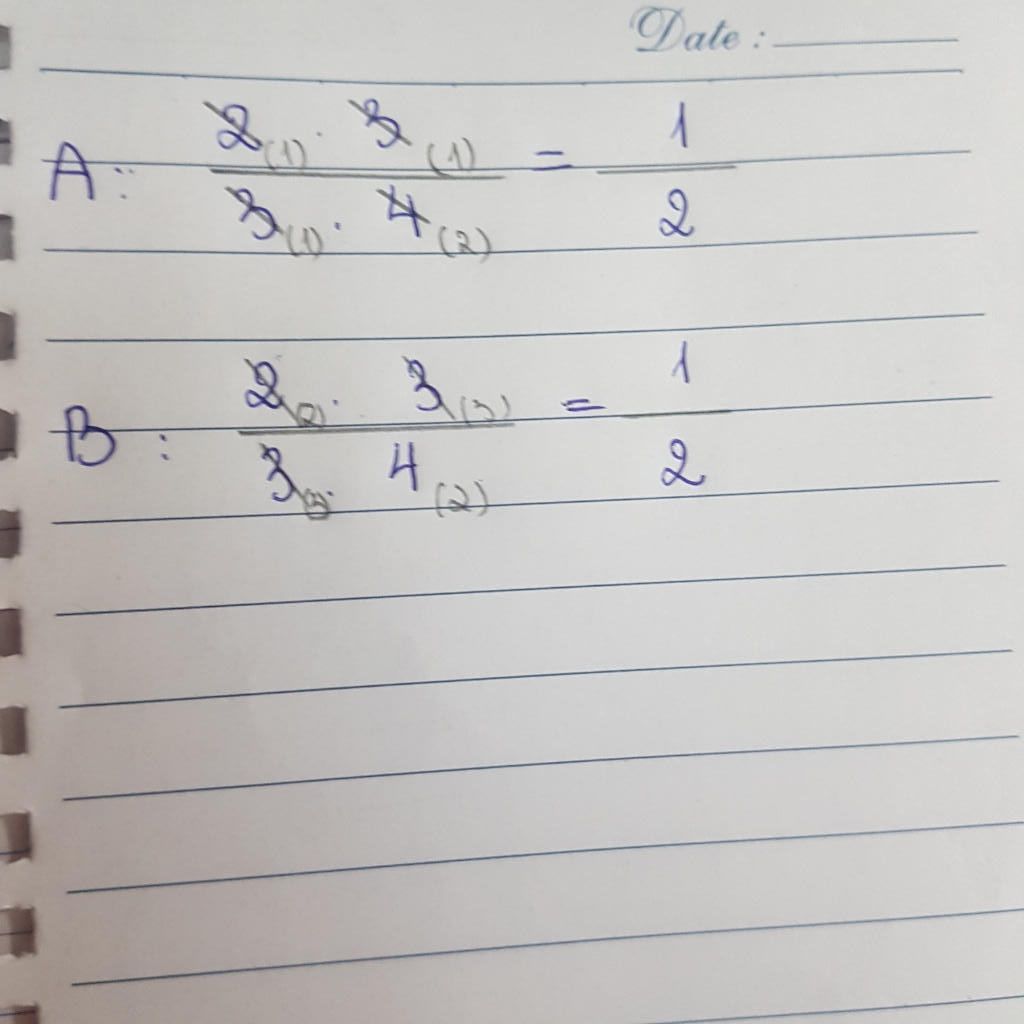 Date :
A : 2(1) . 3(1) = 1
3(1) . 4(2) 2
B : 2(2) . 3(3) = 1
3(3) . 4(2) 2